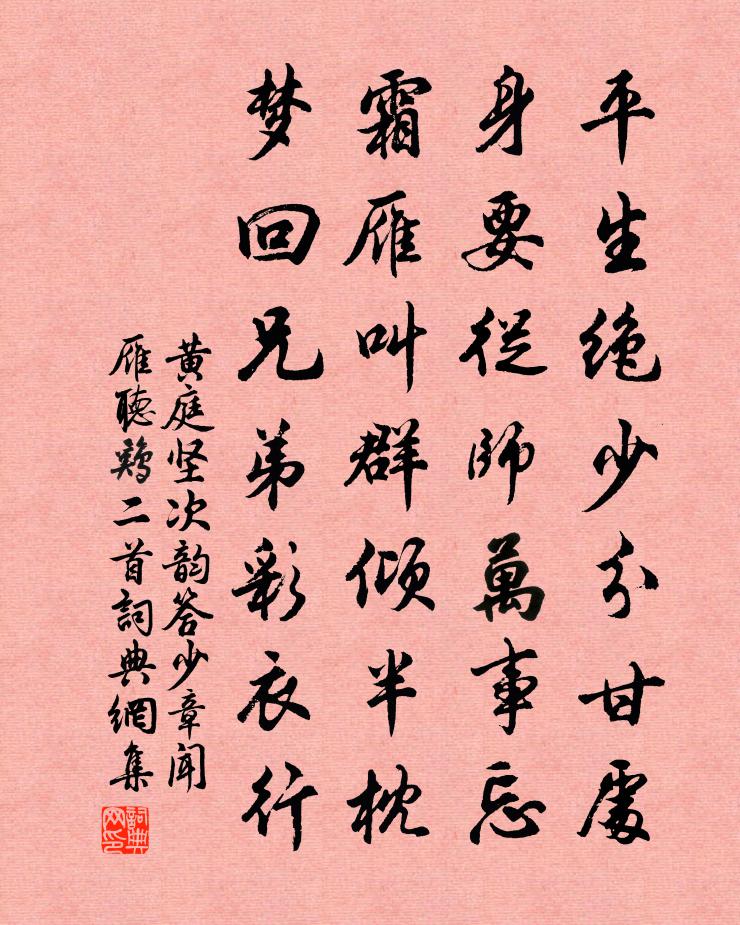 平生绝少分甘處
身要從師萬事忘
霜雁叫群傾半枕
梦回兄弟彩衣行
黄庭坚次韵答少章聞
雁聽鷄二首詞典網集
詞典网印